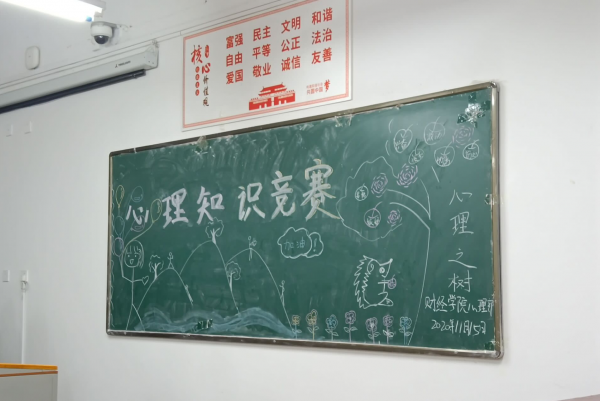 富强 民主 文明 和谐
自由 平等 公正 法治
爱国 敬业 诚信 友善
核心价值观
心理知识竞赛
加油!
心理之树
财经学院心理部
2020年11月15日